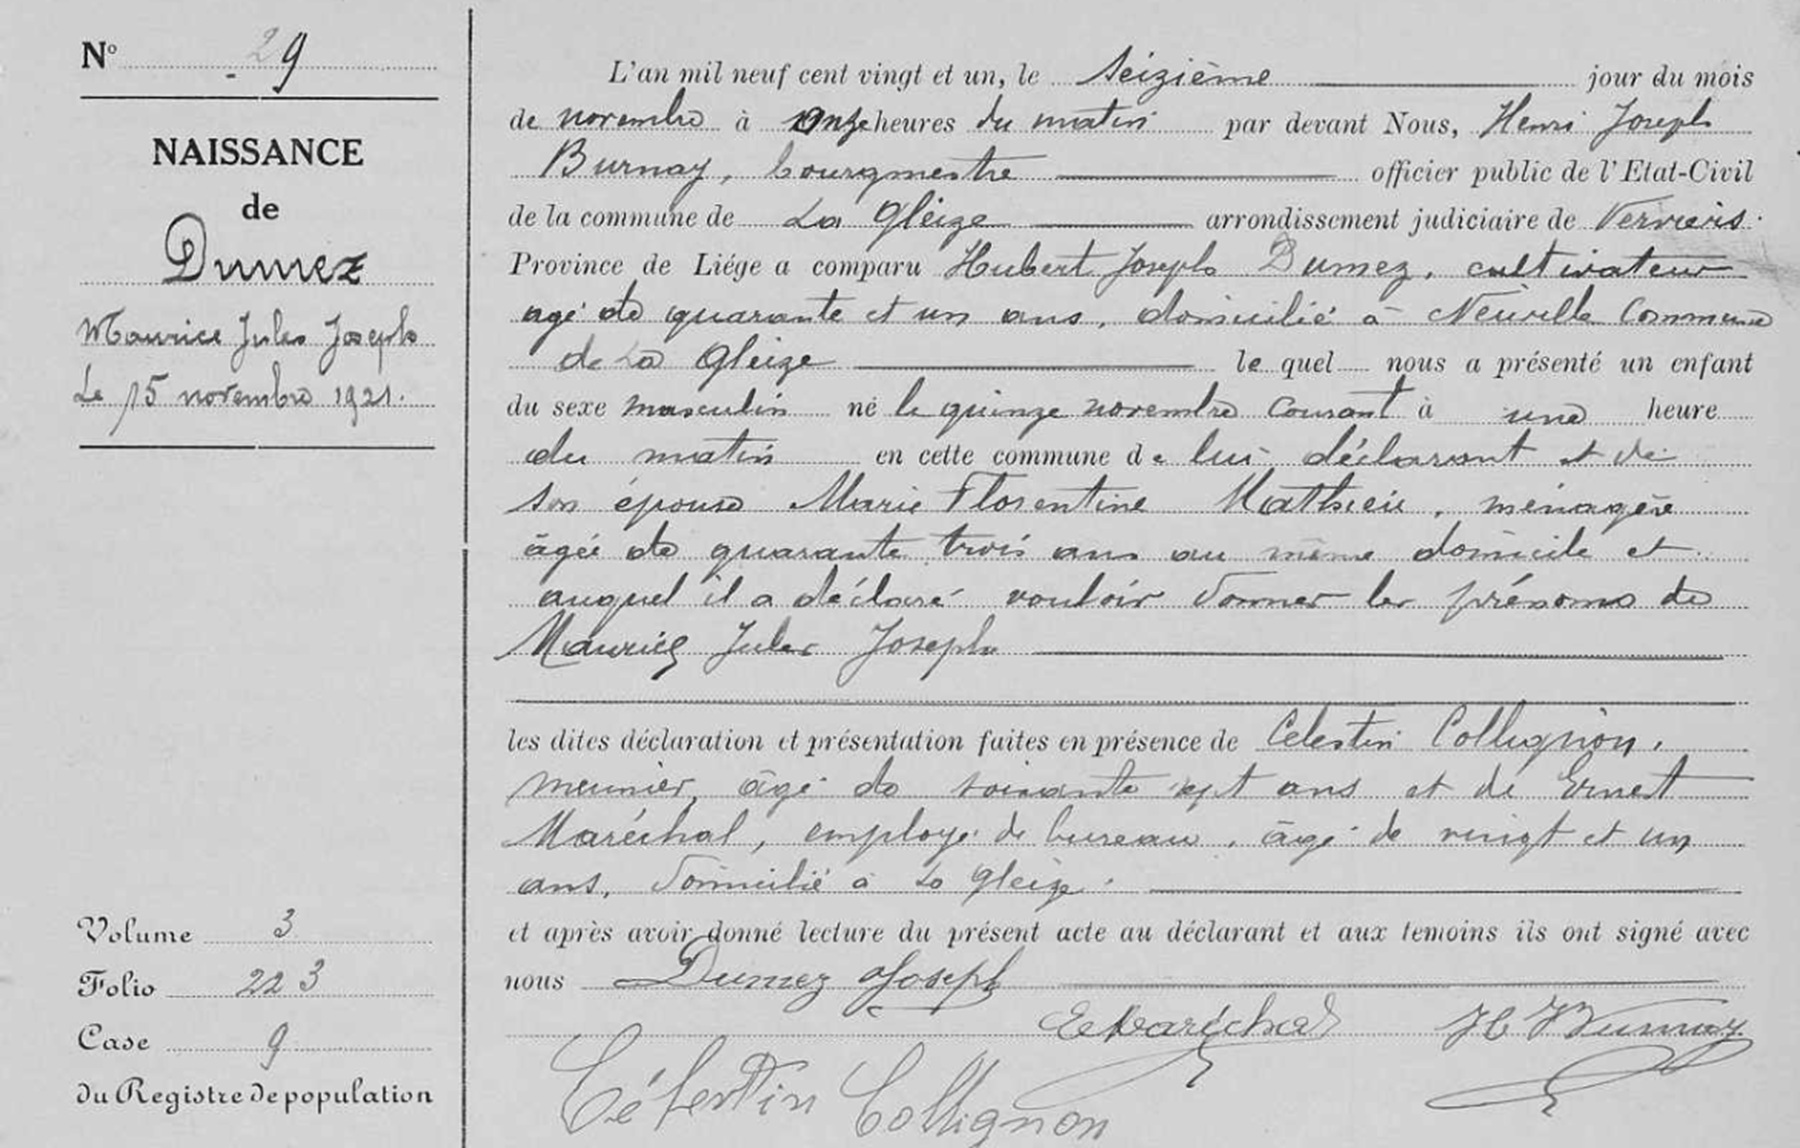 N° 29
NAISSANCE
de
Dumez
Maurice Jules Joseph
Le 15 novembre 1921.
Volume 3
Folio 223
Case 9
du Registre de population
L'an mil neuf cent vingt et un, le seizième jour du mois
de novembre à onze heures du matin par devant Nous, Henri Joseph
Burnay, bourgmestre officier public de l'Etat-Civil
de la commune de La Gleize arrondissement judiciaire de Verviers.
Province de Liége a comparu Hubert Joseph Dumez, cultivateur
agé de quarante et un ans, domicilié à Neuville Commune
de La Gleize le quel nous a présenté un enfant
du sexe masculin né le quinze novembre courant à une heure
du matin en cette commune de lui déclarant et de
son épouse Marie Florentine Mathieu, ménagère
âgée de quarante trois ans au même domicile et
auquel il a déclaré vouloir donner les prénoms de
Maurice Jules Joseph
les dites déclaration et présentation faites en présence de Célestin Collignon,
meunier, âgé de soixante sept ans et de Ernest
Maréchal, employé de bureau, âgé de vingt et un
ans, domicilié à La Gleize.
et après avoir donné lecture du présent acte au déclarant et aux temoins ils ont signé avec
nous Dumez Joseph
E Maréchal H Burnay
Célestin Collignon